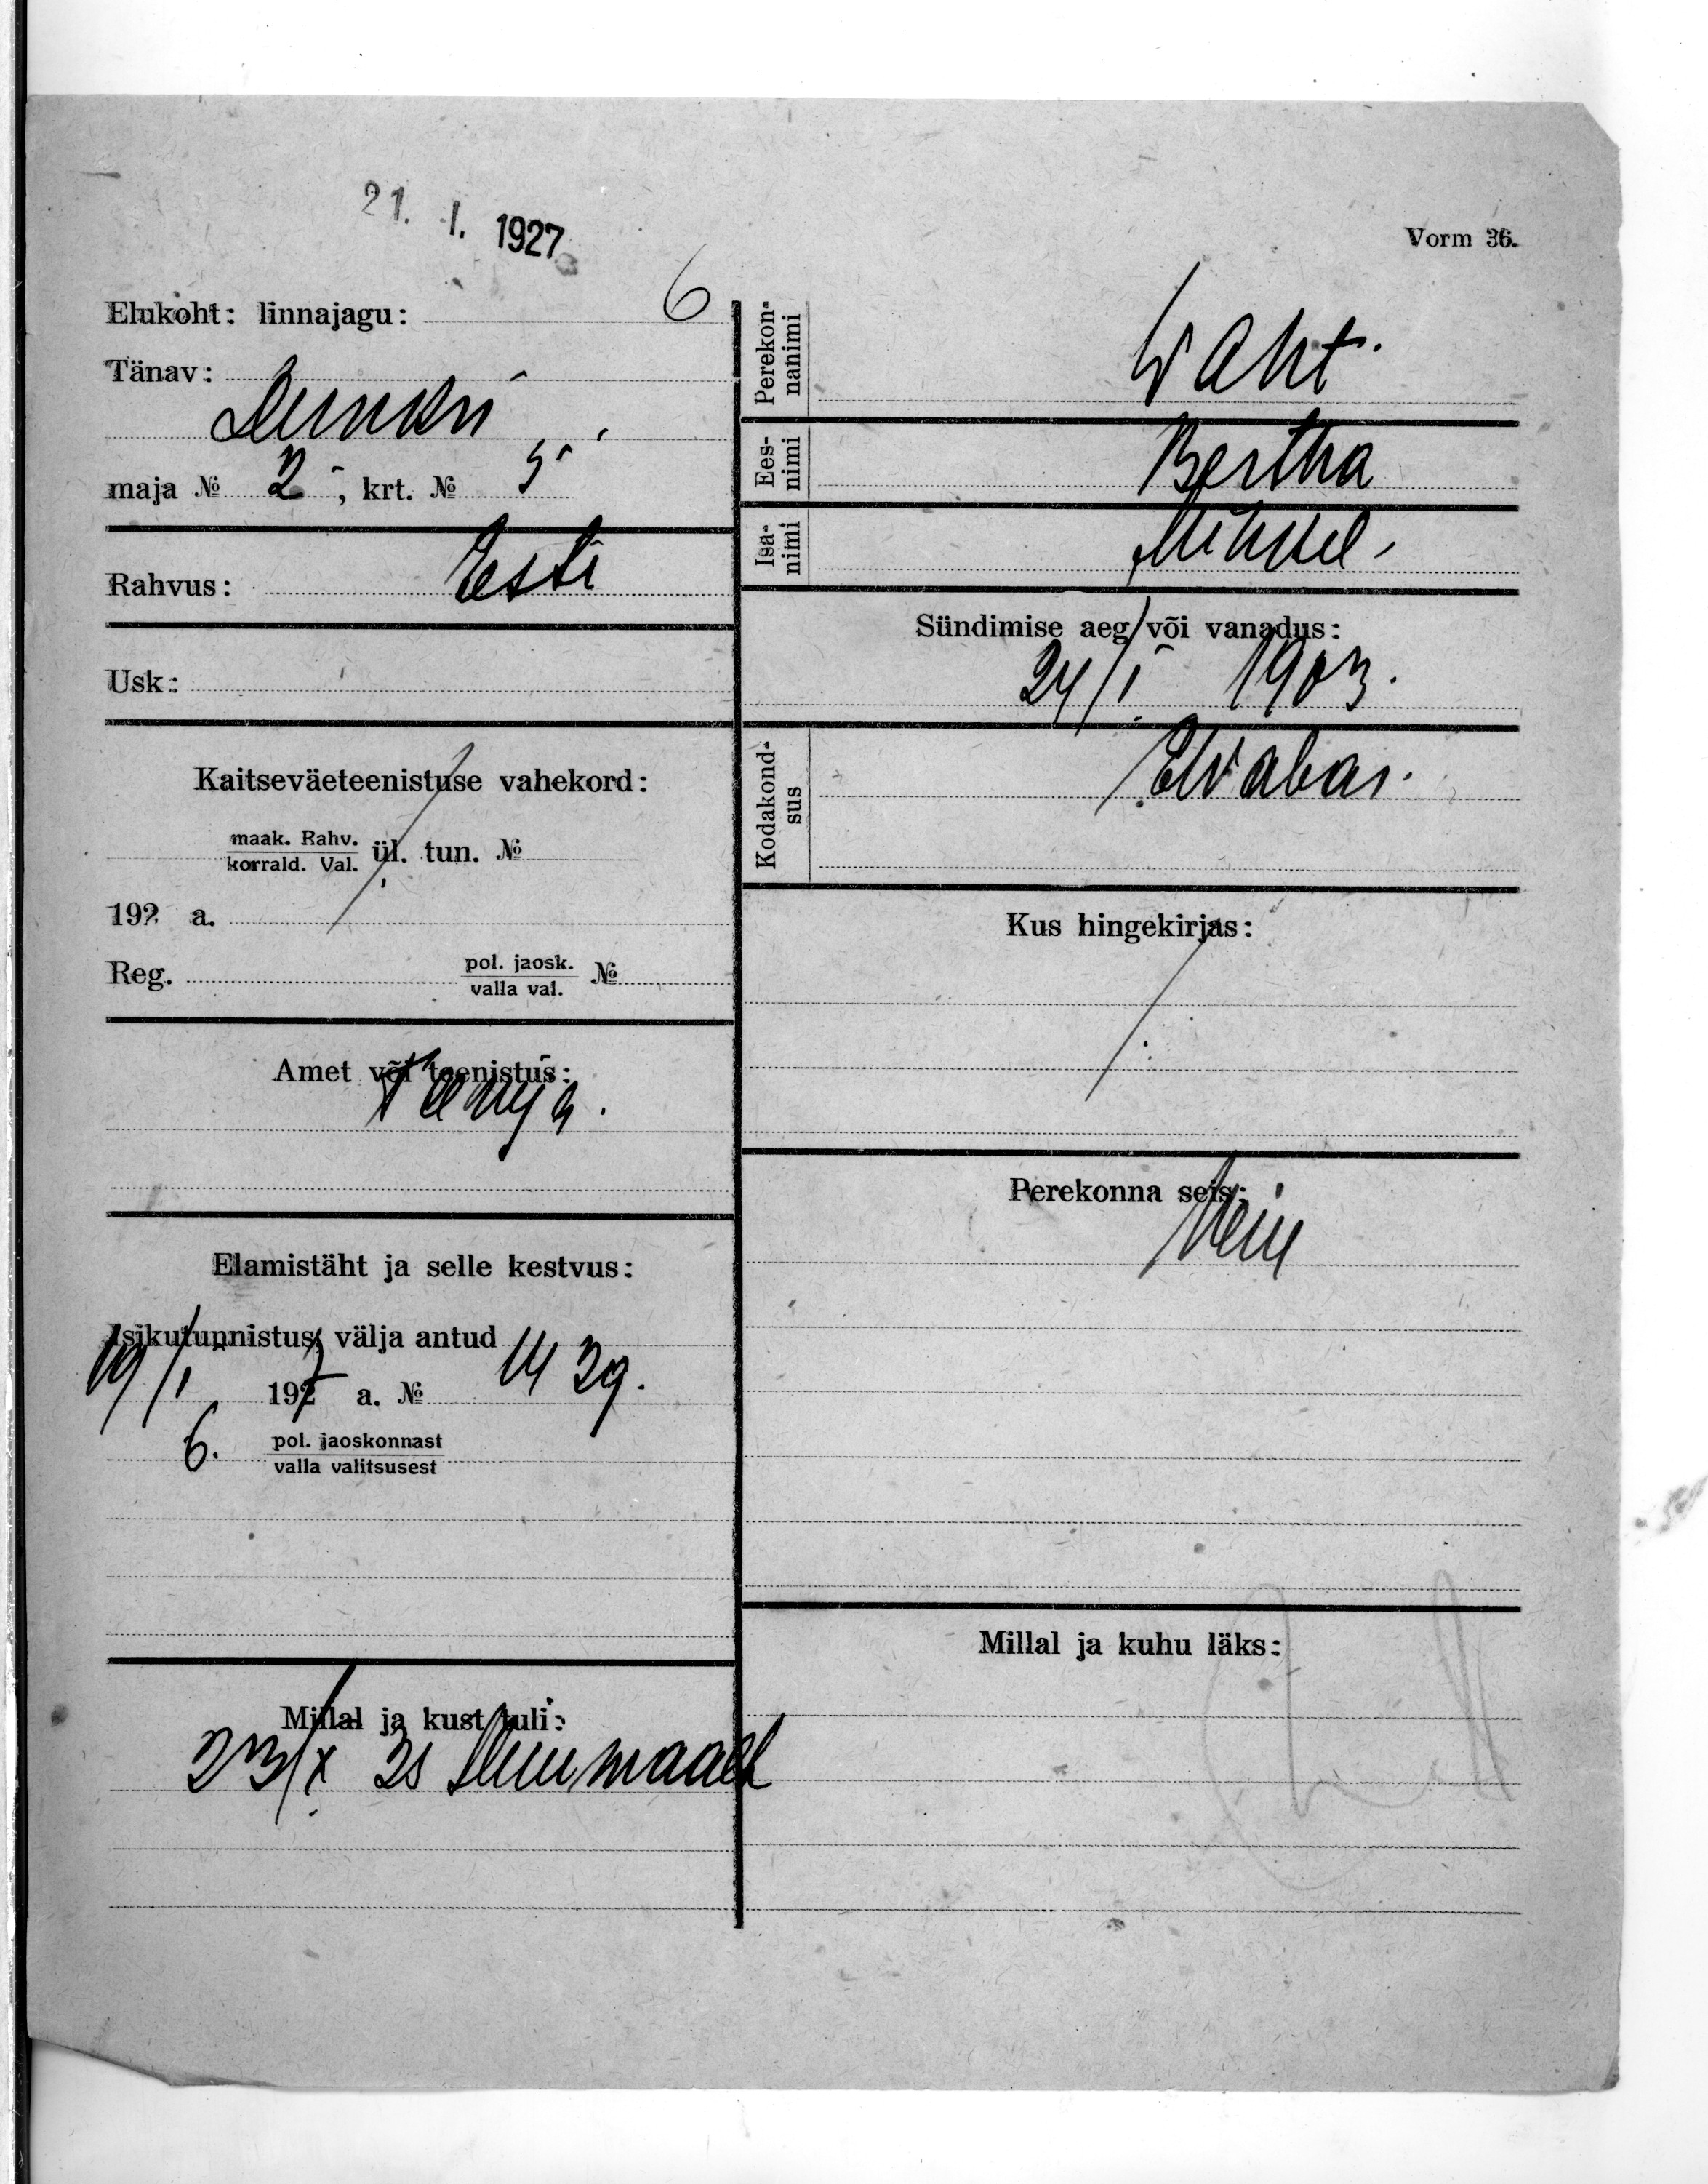 21. I. 1927
Vorm 36.
Elukoht: linnajagu: 6
Tänav:
maja № 2, krt. № 5
Rahvus: Esti
Usk:
Kaitseväeteenistuse vahekord:
maak. Rahv.
korrald. Val. ül. tun. №
192 a.
Reg. pol. jaosk.
valla val. №
Amet või teenistus:
Teenija.
Elamistäht ja selle kestvus:
Isikutunnistus välja antud
19/I 1927 a. № 1439.
6. pol. jaoskonnast
valla valitsusest
Millal ja kust tuli:
23/X 25
Perekonnanimi Waht
Eesnimi Bertha
Isanimi Mihkel
Sündimise aeg või vanadus:
24/I 1903.
Kodakondsus
Kus hingekirjas:
Perekonna seis:
Neiu
Millal ja kuhu läks: